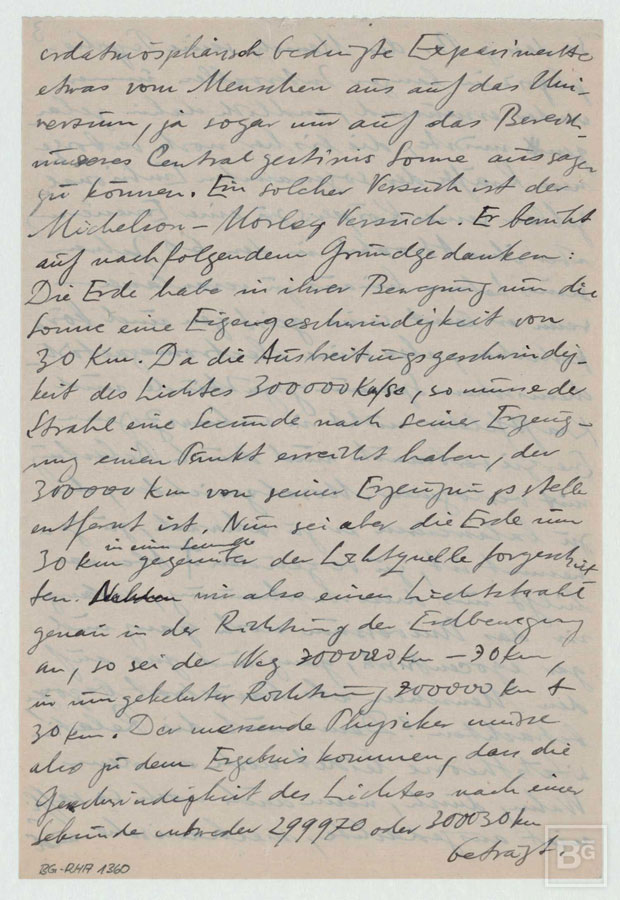 erdatmosphärisch bedingte Experimente
etwas vom Menschen aus auf das Uni-
versum, ja sogar nur auf das Bereich
unseres Centralgestirns Sonne aussagen
zu können. Ein solcher Versuch ist der
Michelson-Morley Versuch. Er beruht
auf nachfolgendem Grundgedanken:
Die Erde habe in ihrer Bewegung um die
Sonne eine Eigengeschwindigkeit von
30 Km. Da die Ausbreitungsgeschwindig-
keit des Lichtes 300000 Km/sc, so müsse der
Strahl eine Secunde nach seiner Erzeug-
ung einen Punkt erreicht haben, der
300000 Km von seiner Erzeugungsstelle
entfernt ist. Nun sei aber die Erde um
30 Km in einer Secunde gegenüber der Lichtquelle forgeschrit
ten. wir also einen Lichtstrahl
genau in der Richtung der Erdbewegung
an, so sei der Weg 300000 Km - 30 Km,
in umgekehrter Richtung 300000 Km +
30 Km. Der messende Physiker müsse
also zu dem Ergebnis kommen, dass die
Geschwindigkeit des Lichtes nach einer
Sekunde entweder 299970 oder 300030 Km
beträgt.
BG-RHA 1360
BG